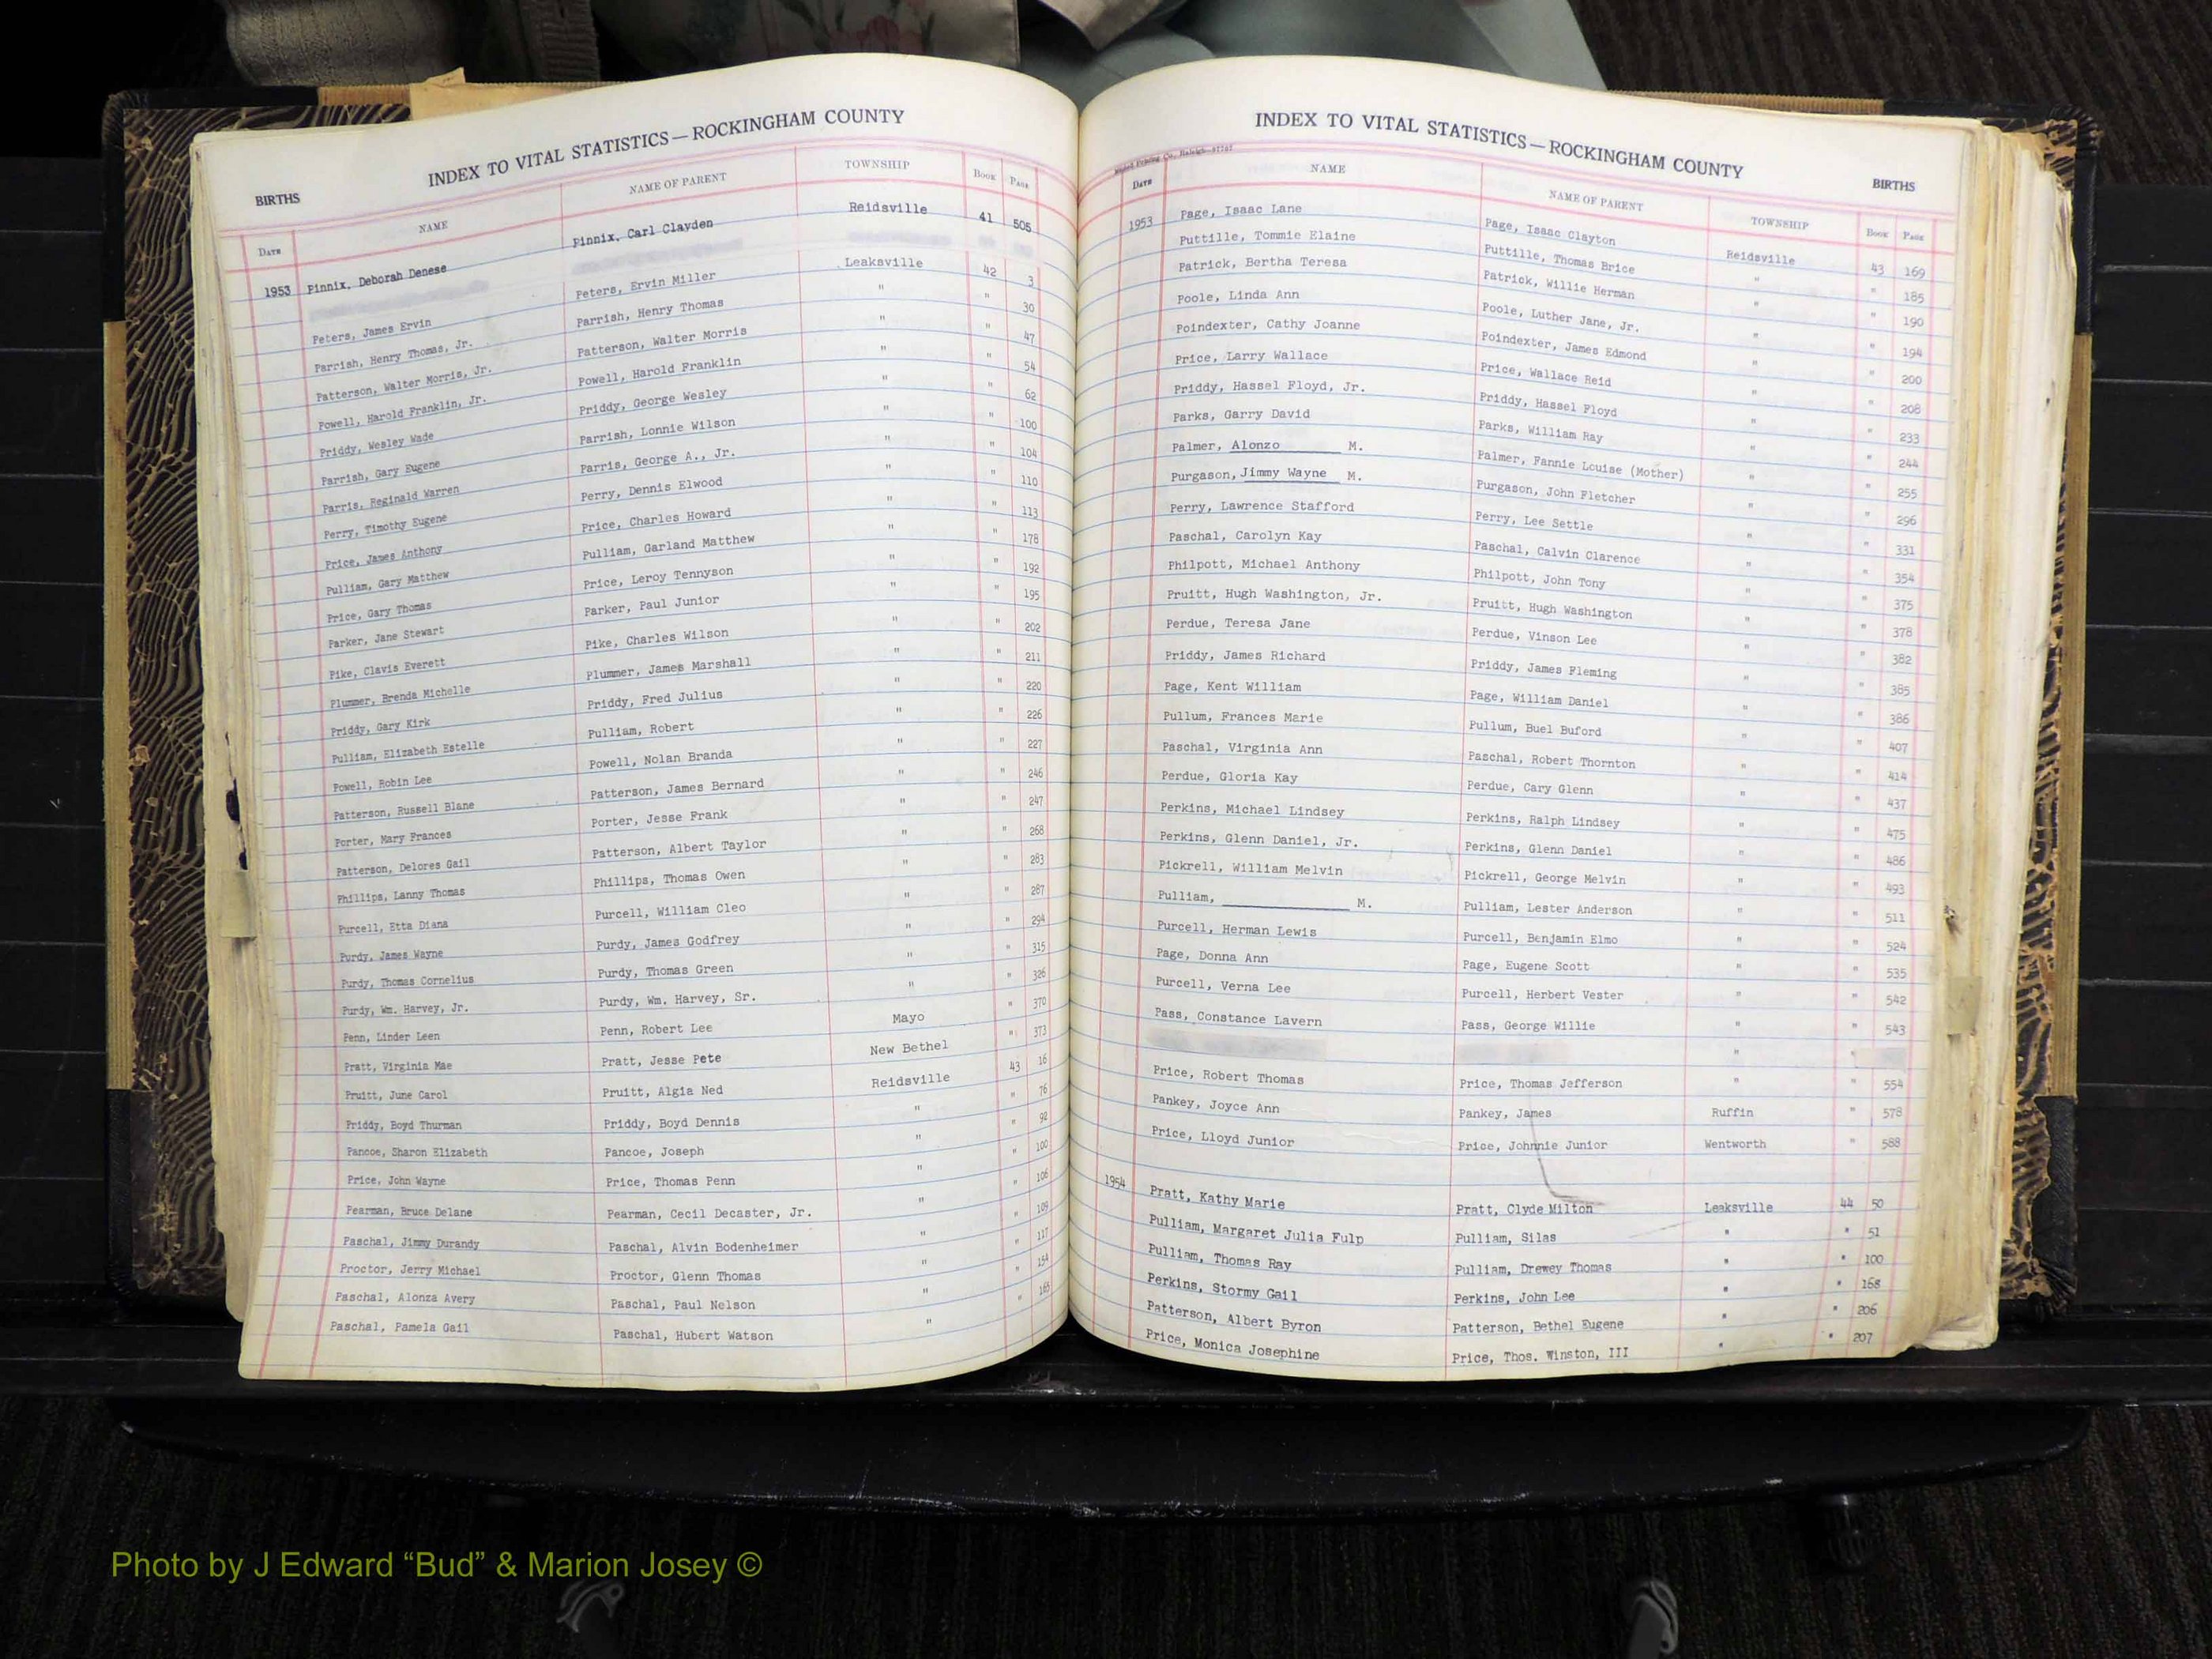 INDEX TO VITAL STATISTICS — ROCKINGHAM COUNTY
BIRTHS
DATE NAME NAME OF PARENT TOWNSHIP BOOK PAGE
1953 Pinnix, Deborah Denese Pinnix, Carl Clayden Reidsville 41 505
Peters, James Ervin Peters, Ervin Miller Leaksville 42 3
Parrish, Henry Thomas, Jr. Parrish, Henry Thomas " " 30
Patterson, Walter Morris, Jr. Patterson, Walter Morris " " 47
Powell, Harold Franklin, Jr. Powell, Harold Franklin " " 54
Priddy, Wesley Wade Priddy, George Wesley " " 62
Parrish, Gary Eugene Parrish, Lonnie Wilson " " 100
Parris, Reginald Warren Parris, George A., Jr. " " 104
Perry, Timothy Eugene Perry, Dennis Elwood " " 110
Price, James Anthony Price, Charles Howard " " 113
Pulliam, Gary Matthew Pulliam, Garland Matthew " " 178
Price, Gary Thomas Price, Leroy Tennyson " " 192
Parker, Jane Stewart Parker, Paul Junior " " 195
Pike, Clavis Everett Pike, Charles Wilson " " 202
Plummer, Brenda Michelle Plummer, James Marshall " " 211
Priddy, Gary Kirk Priddy, Fred Julius " " 220
Pulliam, Elizabeth Estelle Pulliam, Robert " " 226
Powell, Robin Lee Powell, Nolan Branda " " 227
Patterson, Russell Blane Patterson, James Bernard " " 246
Porter, Mary Frances Porter, Jesse Frank " " 247
Patterson, Delores Gail Patterson, Albert Taylor " " 268
Phillips, Lanny Thomas Phillips, Thomas Owen " " 283
Purcell, Etta Diana Purcell, William Cleo " " 287
Purdy, James Wayne Purdy, James Godfrey " " 294
Purdy, Thomas Cornelius Purdy, Thomas Green " " 315
Purdy, Wm. Harvey, Jr. Purdy, Wm. Harvey, Sr. " " 326
Penn, Linder Leen Penn, Robert Lee Mayo " 370
Pratt, Virginia Mae Pratt, Jesse Pete New Bethel " 373
Pruitt, June Carol Pruitt, Algia Ned Reidsville 43 16
Priddy, Boyd Thurman Priddy, Boyd Dennis " " 76
Pancoe, Sharon Elizabeth Pancoe, Joseph " " 92
Price, John Wayne Price, Thomas Penn " " 100
Pearman, Bruce Delane Pearman, Cecil Decaster, Jr. " " 106
Paschal, Jimmy Durandy Paschal, Alvin Bodenheimer " " 109
Proctor, Jerry Michael Proctor, Glenn Thomas " " 117
Paschal, Alonza Avery Paschal, Paul Nelson " " 154
Paschal, Pamela Gail Paschal, Hubert Watson " " 165
INDEX TO VITAL STATISTICS — ROCKINGHAM COUNTY
BIRTHS
DATE NAME NAME OF PARENT TOWNSHIP BOOK PAGE
1953 Page, Isaac Lane Page, Isaac Clayton Reidsville 43 169
Puttille, Tommie Elaine Puttille, Thomas Brice " " 185
Patrick, Bertha Teresa Patrick, Willie Herman " " 190
Poole, Linda Ann Poole, Luther Jane, Jr. " " 194
Poindexter, Cathy Joanne Poindexter, James Edmond " " 200
Price, Larry Wallace Price, Wallace Reid " " 208
Priddy, Hassel Floyd, Jr. Priddy, Hassel Floyd " " 233
Parks, Garry David Parks, William Ray " " 244
Palmer, Alonzo M. Palmer, Fannie Louise (Mother) " " 255
Purgason, Jimmy Wayne M. Purgason, John Fletcher " " 296
Perry, Lawrence Stafford Perry, Lee Settle " " 331
Paschal, Carolyn Kay Paschal, Calvin Clarence " " 354
Philpott, Michael Anthony Philpott, John Tony " " 375
Pruitt, Hugh Washington, Jr. Pruitt, Hugh Washington " " 378
Perdue, Teresa Jane Perdue, Vinson Lee " " 382
Priddy, James Richard Priddy, James Fleming " " 385
Page, Kent William Page, William Daniel " " 386
Pullum, Frances Marie Pullum, Buel Buford " " 407
Paschal, Virginia Ann Paschal, Robert Thornton " " 414
Perdue, Gloria Kay Perdue, Cary Glenn " " 437
Perkins, Michael Lindsey Perkins, Ralph Lindsey " " 475
Perkins, Glenn Daniel, Jr. Perkins, Glenn Daniel " " 486
Pickrell, William Melvin Pickrell, George Melvin " " 493
Pulliam, M. Pulliam, Lester Anderson " " 511
Purcell, Herman Lewis Purcell, Benjamin Elmo " " 524
Page, Donna Ann Page, Eugene Scott " " 535
Purcell, Verna Lee Purcell, Herbert Vester " " 542
Pass, Constance Lavern Pass, George Willie " " 543
" "
Price, Robert Thomas Price, Thomas Jefferson " " 554
Pankey, Joyce Ann Pankey, James Ruffin " 578
Price, Lloyd Junior Price, Johnnie Junior Wentworth " 588
1954 Pratt, Kathy Marie Pratt, Clyde Milton Leaksville 44 50
Pulliam, Margaret Julia Fulp Pulliam, Silas " " 51
Pulliam, Thomas Ray Pulliam, Drewey Thomas " " 100
Perkins, Stormy Gail Perkins, John Lee " " 168
Patterson, Albert Byron Patterson, Bethel Eugene " " 206
Price, Monica Josephine Price, Thos. Winston, III " " 207
Photo by J Edward “Bud” & Marion Josey ©